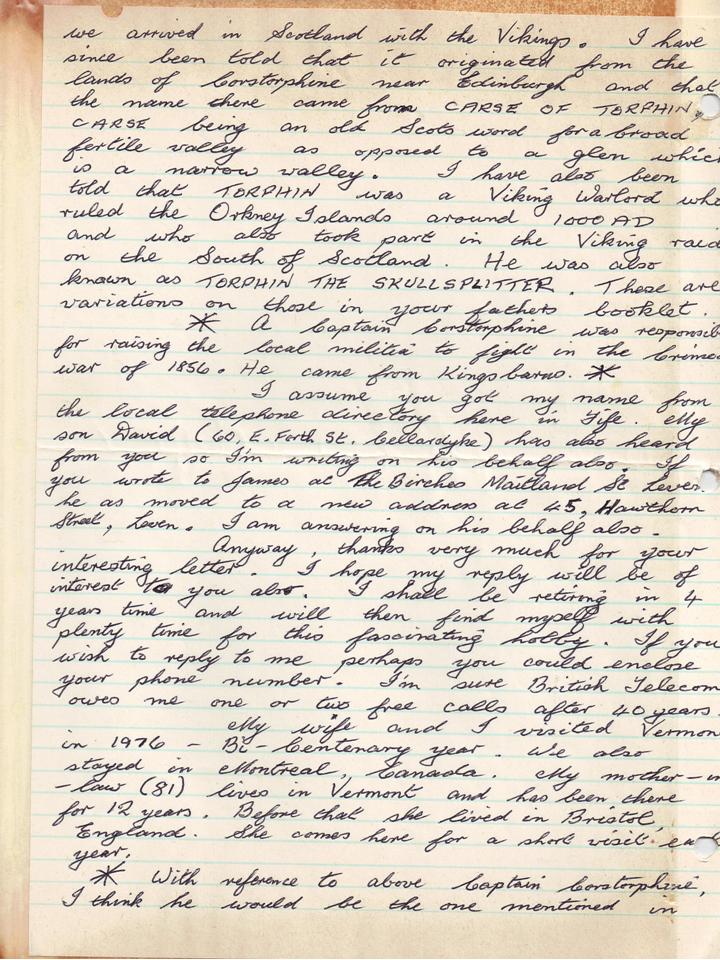 we arrived in Scotland with the Vikings. I have
since been told that it originated from the
lands of Corstorphine near Edinburgh and that
the name there came from CARSE OF TORPHIN,
CARSE being an old Scots word for a broad
fertile valley as opposed to a glen which
is a narrow valley. I have also been
told that TORPHIN was a Viking Warlord who
ruled the Orkney Islands around 1000 AD
and who also took part in the Viking raid
on the South of Scotland. He was also
known as TORPHIN THE SKULLSPLITTER. These are
variations on those in your fathers booklet.
* A Captain Corstorphine was responsib
for raising the local militia to fight in the Crimea
war of 1856. He came from Kingsbarns. *
I assume you got my name from
the local telephone directory here in Fife. My
son David (60, E. Forth St. Cellardyke) has also heard
from you so I'm writing on his behalf also. If
you wrote to James at The Birches Maitland St Leven
he as moved to a new address at 45, Hawthorn
Street, Leven. I am answering on his behalf also.
Anyway, thanks very much for your
interesting letter. I hope my reply will be of
interest to you also. I shall be retiring in 4
years time and will then find myself with
plenty time for this fascinating hobby. If you
wish to reply to me perhaps you could enclose
your phone number. I'm sure British Telecom
owes me one or two free calls after 40 years.
My wife and I visited Vermon
in 1976 - Bi-Centenary year. We also
stayed in Montreal, Canada. My mother-in
-law (81) lives in Vermont and has been there
for 12 years. Before that she lived in Bristol,
England. She comes here for a short visit each
year.
* With reference to above Captain Corstorphine,
I think he would be the one mentioned in